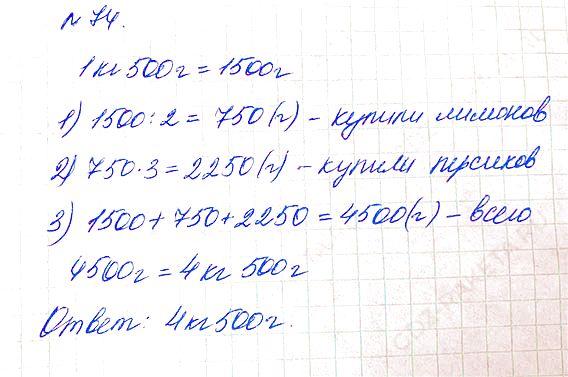 № 74.
1 кг 500 г = 1500 г
1) 1500 : 2 = 750 (г) – купили лимонов
2) 750 · 3 = 2250 (г) – купили персиков
3) 1500 + 750 + 2250 = 4500 (г) – всего
4500 г = 4 кг 500 г
Ответ: 4 кг 500 г.